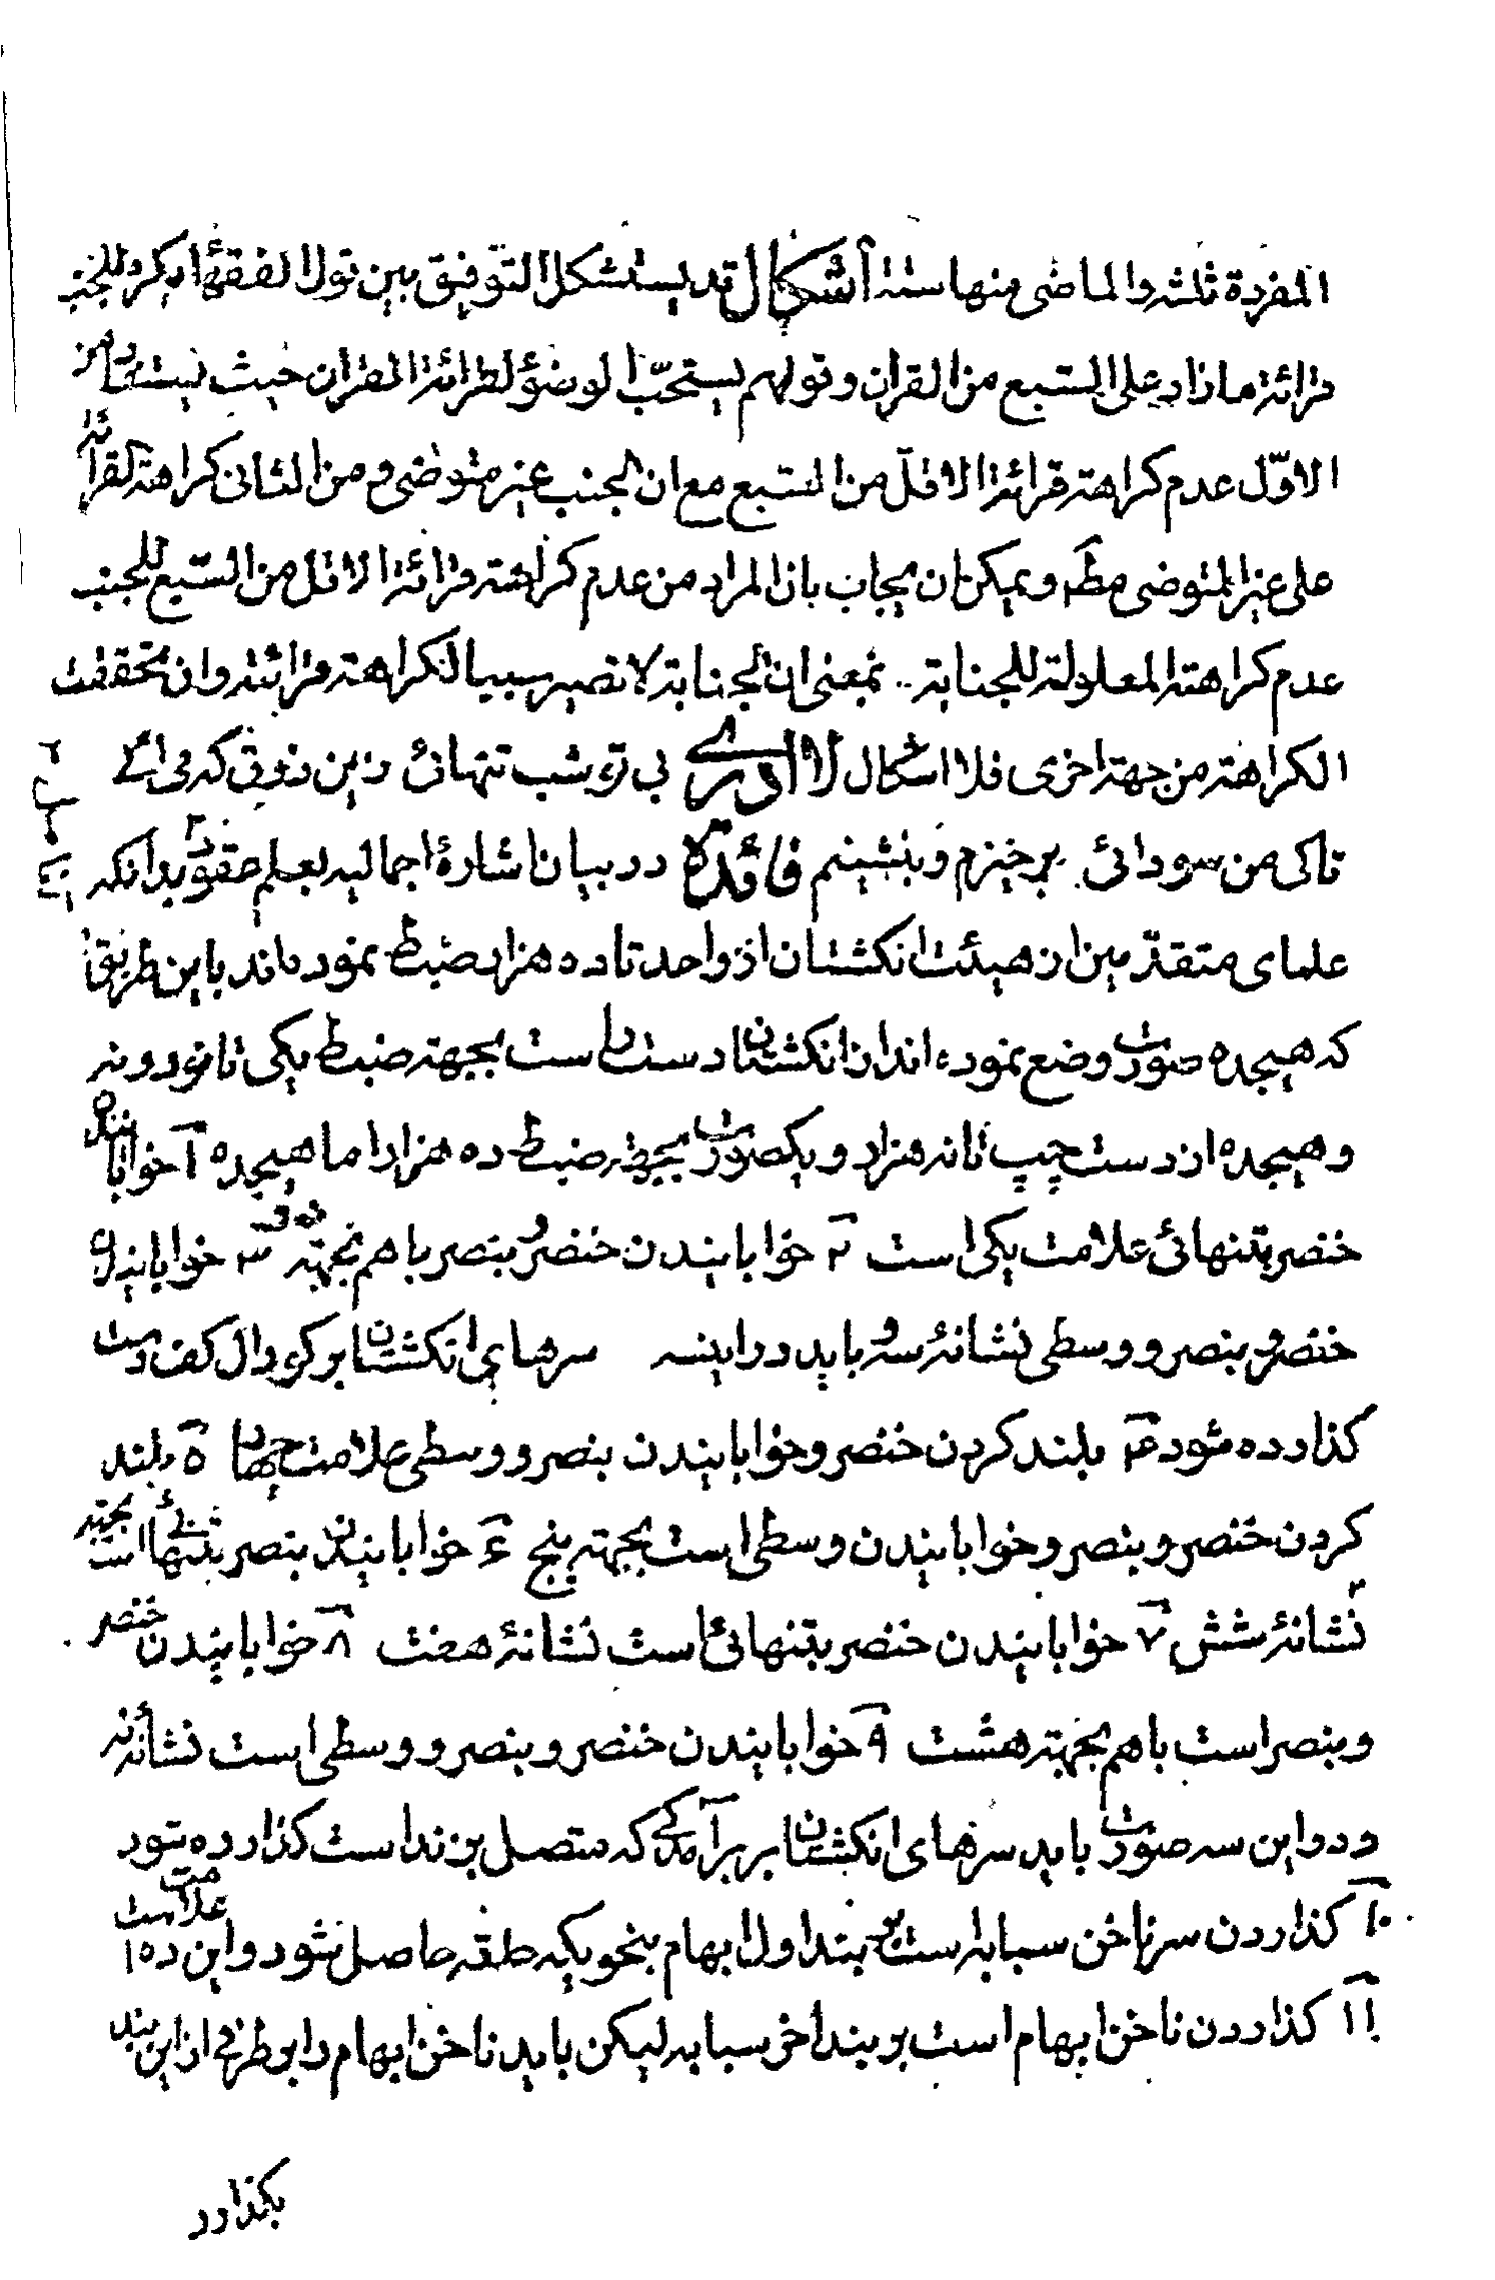 المفردة ثلثه والماضی منها ستة اشكال قد یستشكل التوفیق بین قول الفقهاء یكره للجنب
قرائة ما زاد علی السبع من القران وقولهم یستحبّ الوضؤ لقرائة القران حیث یستفاد من
الاوّل عدم كراهة قرائة الاقلّ من السبع مع ان الجنب غیر متوضی ومن الثانی كراهة القرائة
علی غیر المتوضی مطم ویمكن ان یجاب بان المراد من عدم كراهة قرائة الاقل من السّبع للجنب
عدم كراهته المعلولة للجنابة بمعنی ان الجنابة لا تصیر سببا لكراهة قرائته وان تحققت
الكراهة من جهة اخری فلا اشكال لا ادری بی تو شب تنهائی زین ذوق كه می ائی
تا كی من سودائی برخیزم و بنشینم فائدة در بیان اشارهٔ اجمالیه بعلم عقود بدانكه
علمای متقدّمین از هیئت انكشتان از واحد تا ده هزار ضبط نموده اند باین طریق
كه هیجده صورت وضع نموده اند از انكشتان دست راست بجهته ضبط یكی تا نود و نه
و هیجده از دست چپ تا نه هزار و یكصورت بجهته ضبط ده هزار اما هیجده ١ خوابانیدن
خنصر بتنهائی علامت یكی است ٢ خوابانیدن خنصر و بنصر با هم بجهته دو ٣ خوابانیدن
خنصر و بنصر و وسطی نشانهٔ سه و باید در اینسه سرهای انكشتان بر كودال كف دست
كذارده شود ٤ بلند كردن خنصر و خوابانیدن بنصر و وسطی علامت چهار ٥ بلند
كردن خنصر و بنصر و خوابانیدن وسطی است بجهته پنج ٦ خوابانیدن بنصر بتنهائی است بجهته
نشانهٔ شش ٧ خوابانیدن خنصر بتنهائی است نشانهٔ هفت ٨ خوابانیدن خنصر
و بنصر است با هم بجهته هشت ٩ خوابانیدن خنصر و بنصر و وسطی است نشانه نه
و در این سه صورت باید سرهای انكشتان بر برآمدكی كه متصل بزند است كذارده شود
١٠ كذاردن سر ناخن سبابه است بر بند اول ابهام بنحویكه حلقه حاصل شود و این علامت ده است
١١ كذاردن ناخن ابهام است بر بند اخر سبابه لیكن باید ناخن ابهام را بر طرفی از این بند
بكذارد